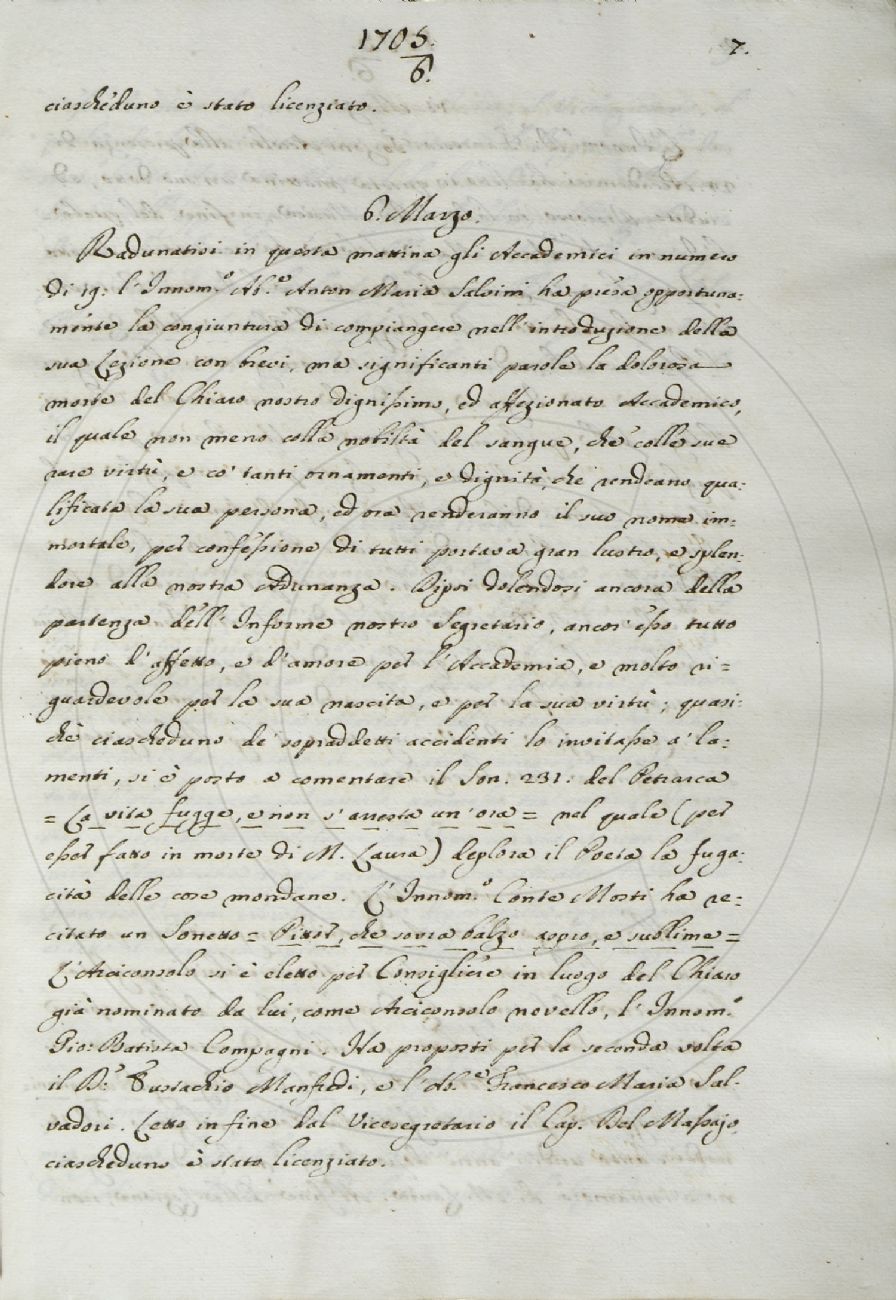 1705.
6.
7.
ciascheduno è stato licenziato.
6. Marzo.
Radunatisi in questa mattina gli Accademici in numero
di 19: l'Innom.º Ab.e Anton Maria Salvini ha presa opportuna:
mente la congiuntura di compiangere nell'introduzione della
sua Lezione con brevi, ma significanti parole la dolorosa
morte del Chiaro nostro dignissimo, ed affezionato Accademico,
il quale non meno colla nobiltà del sangue, che colle sue
rare virtù, e co' tanti ornamenti, e dignità, che rendeano qua:
lificata la sua persona, ed ora renderanno il suo nome im:
mortale, per confessione di tutti portava gran lustro, e splen:
dore alla nostra Adunanza. Dipoi dolendosi ancora della
partenza dell'Informe nostro Segretario, ancor'esso tutto
pieno d'affetto, e d'amore per l'Accademia, e molto ri=
guardevole per la sua nascita, e per la sua virtù; quasi:
chè ciascheduno de' sopraddetti accidenti lo invitasse a' la:
menti, si è posto a comentare il Son. 231. del Petrarca
= La vita fugge, e non s'arresta un'ora = nel quale (per
esser fatto in morte di M. Laura) deplora il Poeta la fuga:
cità delle cose mondane. L'Innom.º Conte Morti ha re:
citato un Sonetto = Pittor, che sovra balzo aspro, e sublime =
L'Arciconsolo si è eletto per Consigliere in luogo del Chiaro
già nominato da lui, come Arciconsolo novello, l'Innom.º
Gio: Batista Compagni. Ha proposti per la seconda volta
il D.r Eustachio Manfredi, e l'Ab.e Francesco Maria Sal:
vadori. Letto in fine dal Vicesegretario il Cap. Del Massajo
ciascheduno è stato licenziato.